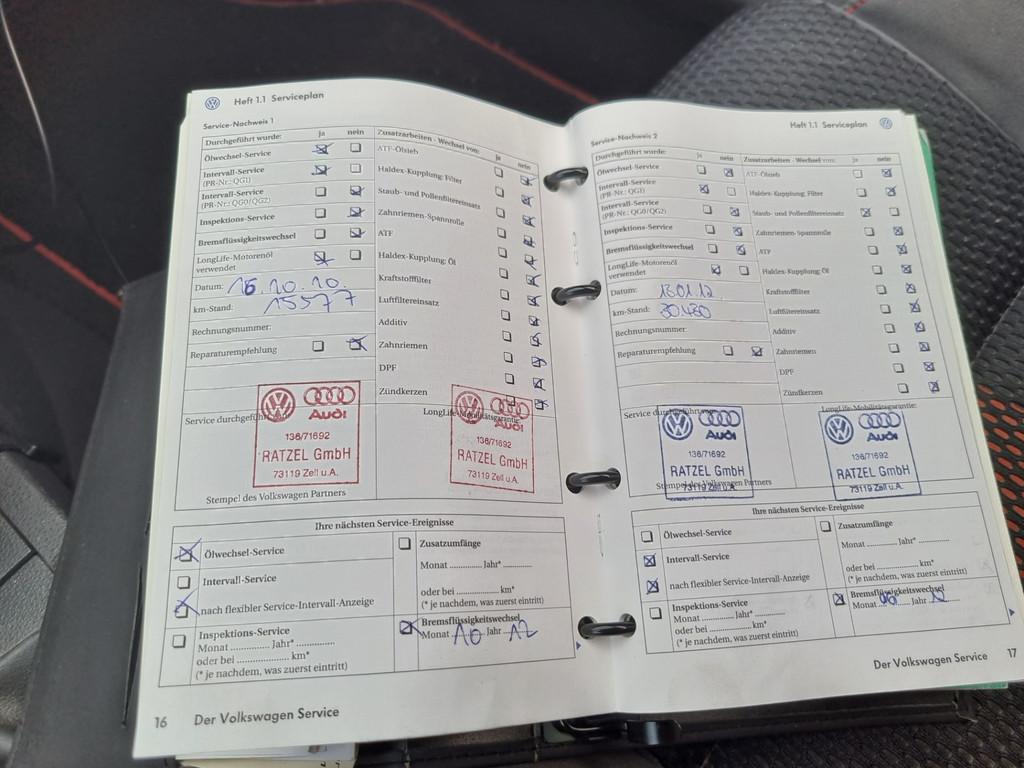 Heft 1.1 Serviceplan
Service-Nachweis 1
Durchgeführt wurde: ja nein
Ölwechsel-Service
Intervall-Service
(PR-Nr.: QG1)
Intervall-Service
(PR-Nr.: QG0/QG2)
Inspektions-Service
Bremsflüssigkeitswechsel
LongLife-Motorenöl
verwendet
Datum: 15.10.10.
km-Stand: 15577
Rechnungsnummer:
Reparaturempfehlung
Zusatzarbeiten - Wechsel von: ja nein
ATF-Ölsieb
Haldex-Kupplung: Filter
Staub- und Pollenfiltereinsatz
Zahnriemen-Spannrolle
ATF
Haldex-Kupplung: Öl
Kraftstofffilter
Luftfiltereinsatz
Additiv
Zahnriemen
DPF
Zündkerzen
Service durchgeführt
Audi
136/71692
RATZEL GmbH
73119 Zell u.A.
Stempel des Volkswagen Partners
LongLife-Mobilitätsgarantie:
Audi
136/71692
RATZEL GmbH
73119 Zell u.A.
Ihre nächsten Service-Ereignisse
Ölwechsel-Service
Intervall-Service
nach flexibler Service-Intervall-Anzeige
Inspektions-Service
Monat ............. Jahr* .............
oder bei .................... km*
(* je nachdem, was zuerst eintritt)
Zusatzumfänge
Monat ............. Jahr* .............
oder bei .................... km*
(* je nachdem, was zuerst eintritt)
Bremsflüssigkeitswechsel
Monat 10 Jahr 12
16 Der Volkswagen Service
Heft 1.1 Serviceplan
Service-Nachweis 2
Durchgeführt wurde: ja nein
Ölwechsel-Service
Intervall-Service
(PR-Nr.: QG1)
Intervall-Service
(PR-Nr.: QG0/QG2)
Inspektions-Service
Bremsflüssigkeitswechsel
LongLife-Motorenöl
verwendet
Datum: 13.01.12
km-Stand: 30430
Rechnungsnummer:
Reparaturempfehlung
Zusatzarbeiten - Wechsel von: ja nein
ATF-Ölsieb
Haldex-Kupplung: Filter
Staub- und Pollenfiltereinsatz
Zahnriemen-Spannrolle
ATF
Haldex-Kupplung: Öl
Kraftstofffilter
Luftfiltereinsatz
Additiv
Zahnriemen
DPF
Zündkerzen
Service durchgeführt
Audi
136/71692
RATZEL GmbH
73119 Zell u.A.
Stempel des Volkswagen Partners
LongLife-Mobilitätsgarantie:
Audi
136/71692
RATZEL GmbH
73119 Zell u.A.
Ihre nächsten Service-Ereignisse
Ölwechsel-Service
Intervall-Service
nach flexibler Service-Intervall-Anzeige
Inspektions-Service
Monat ............. Jahr* .............
oder bei .................... km*
(* je nachdem, was zuerst eintritt)
Zusatzumfänge
Monat ............. Jahr* .............
oder bei .................... km*
(* je nachdem, was zuerst eintritt)
Bremsflüssigkeitswechsel
Monat Jahr 12
Der Volkswagen Service 17